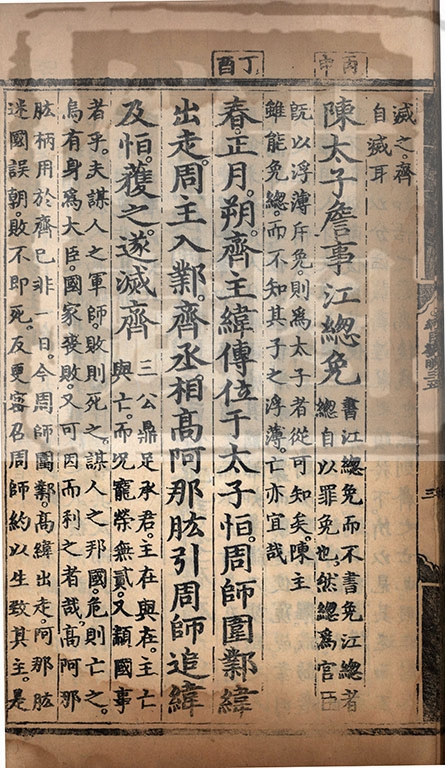 丙申
滅之。齊
自滅耳
陳太子詹事江緫免
書江緫免而不書免江緫者
緫自以罪免也。然緫爲官臣
旣以浮薄斥免。則爲太子者從可知矣。陳主
雖能免緫。而不知其子之浮薄。亡亦宜哉
丁酉
春。正月。朔。齊主緯傳位于太子恒。周師圍鄴。緯
出走。周主入鄴。齊丞相高阿那肱引周師追緯
及恒。獲之。遂滅齊
三公鼎足承君。主在與在。主亡
與亡。而況寵榮無貳。又顓國事
者乎。夫謀人之軍師。敗則死之。謀人之邦國。危則亡之。
烏有身爲大臣。國家喪敗。又可因而利之者哉。高阿那
肱柄用於齊已非一日。今周師圍鄴。高緯出走。阿那肱
迷國誤朝。敗不即死。反更密召周師約以生致其主。是